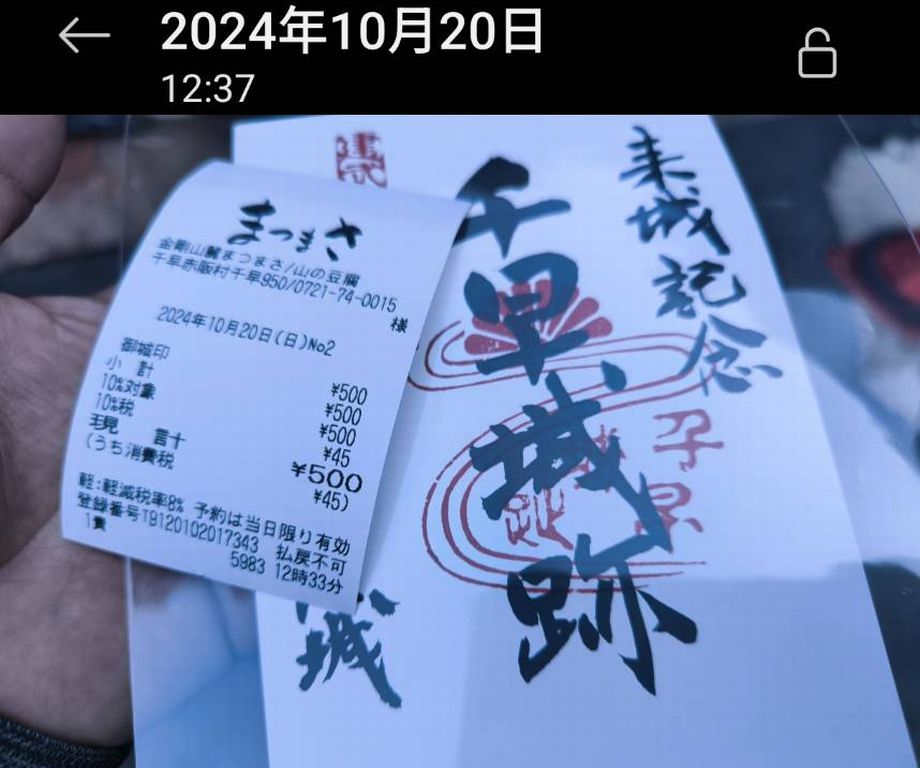 2024年10月20日
12:37
まつまさ
金剛山麓まつまさ/山の豆腐
千早赤阪村千早950/0721-74-0015
様
2024年10月20日(日)No2
御城印 ¥500
小 計 ¥500
10%対象 ¥500
10%税 ¥45
現 計 ¥500
(うち消費税 ¥45)
軽:軽減税率8% 予約は当日限り有効
登録番号T9120102017343 払戻不可
1責 5983 12時33分
来城記念
千早城跡
城